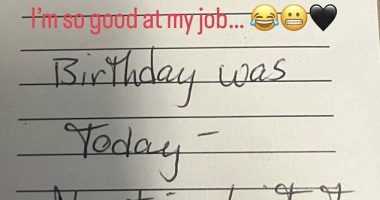 I'm so good at my job... 😂😬🖤
Birthday was
Today -